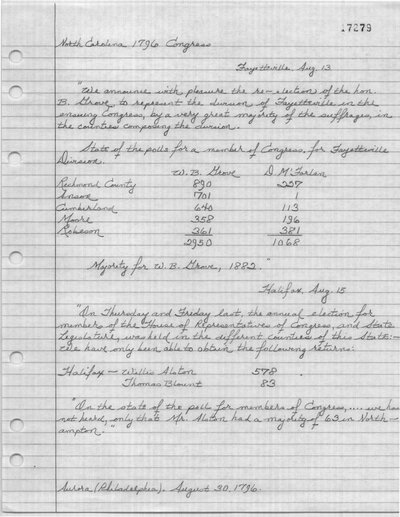 17279
North Carolina 1796 Congress
Fayetteville. Aug. 13
"We announce with pleasure the re-election of the hon.
B. Grove, to represent the division of Fayetteville in the
ensuing Congress, by a very great majority of the suffrages, in
the counties composing the division.
State of the polls for a member of Congress, for Fayetteville
Division.
W. B. Grove D. McFarlan
Richmond County 890 227
Anson 701 1
Cumberland 640 113
Moore 358 196
Robeson 361 381
2950 1068
Majority for W. B. Grove, 1882."
Halifax, Aug. 15
"On Thursday and Friday last, the annual election for
members of the House of Representatives of Congress, and State
Legislature, was held in the different counties of this State:—
we have only been able to obtain the following returns:
Halifax — Willis Alston 578
Thomas Blount 83
"On the state of the poll for members of Congress, .... we ha
not heard, only that Mr. Alston had a majority of 63 in North-
ampton."
Aurora (Philadelphia). August 30, 1796.